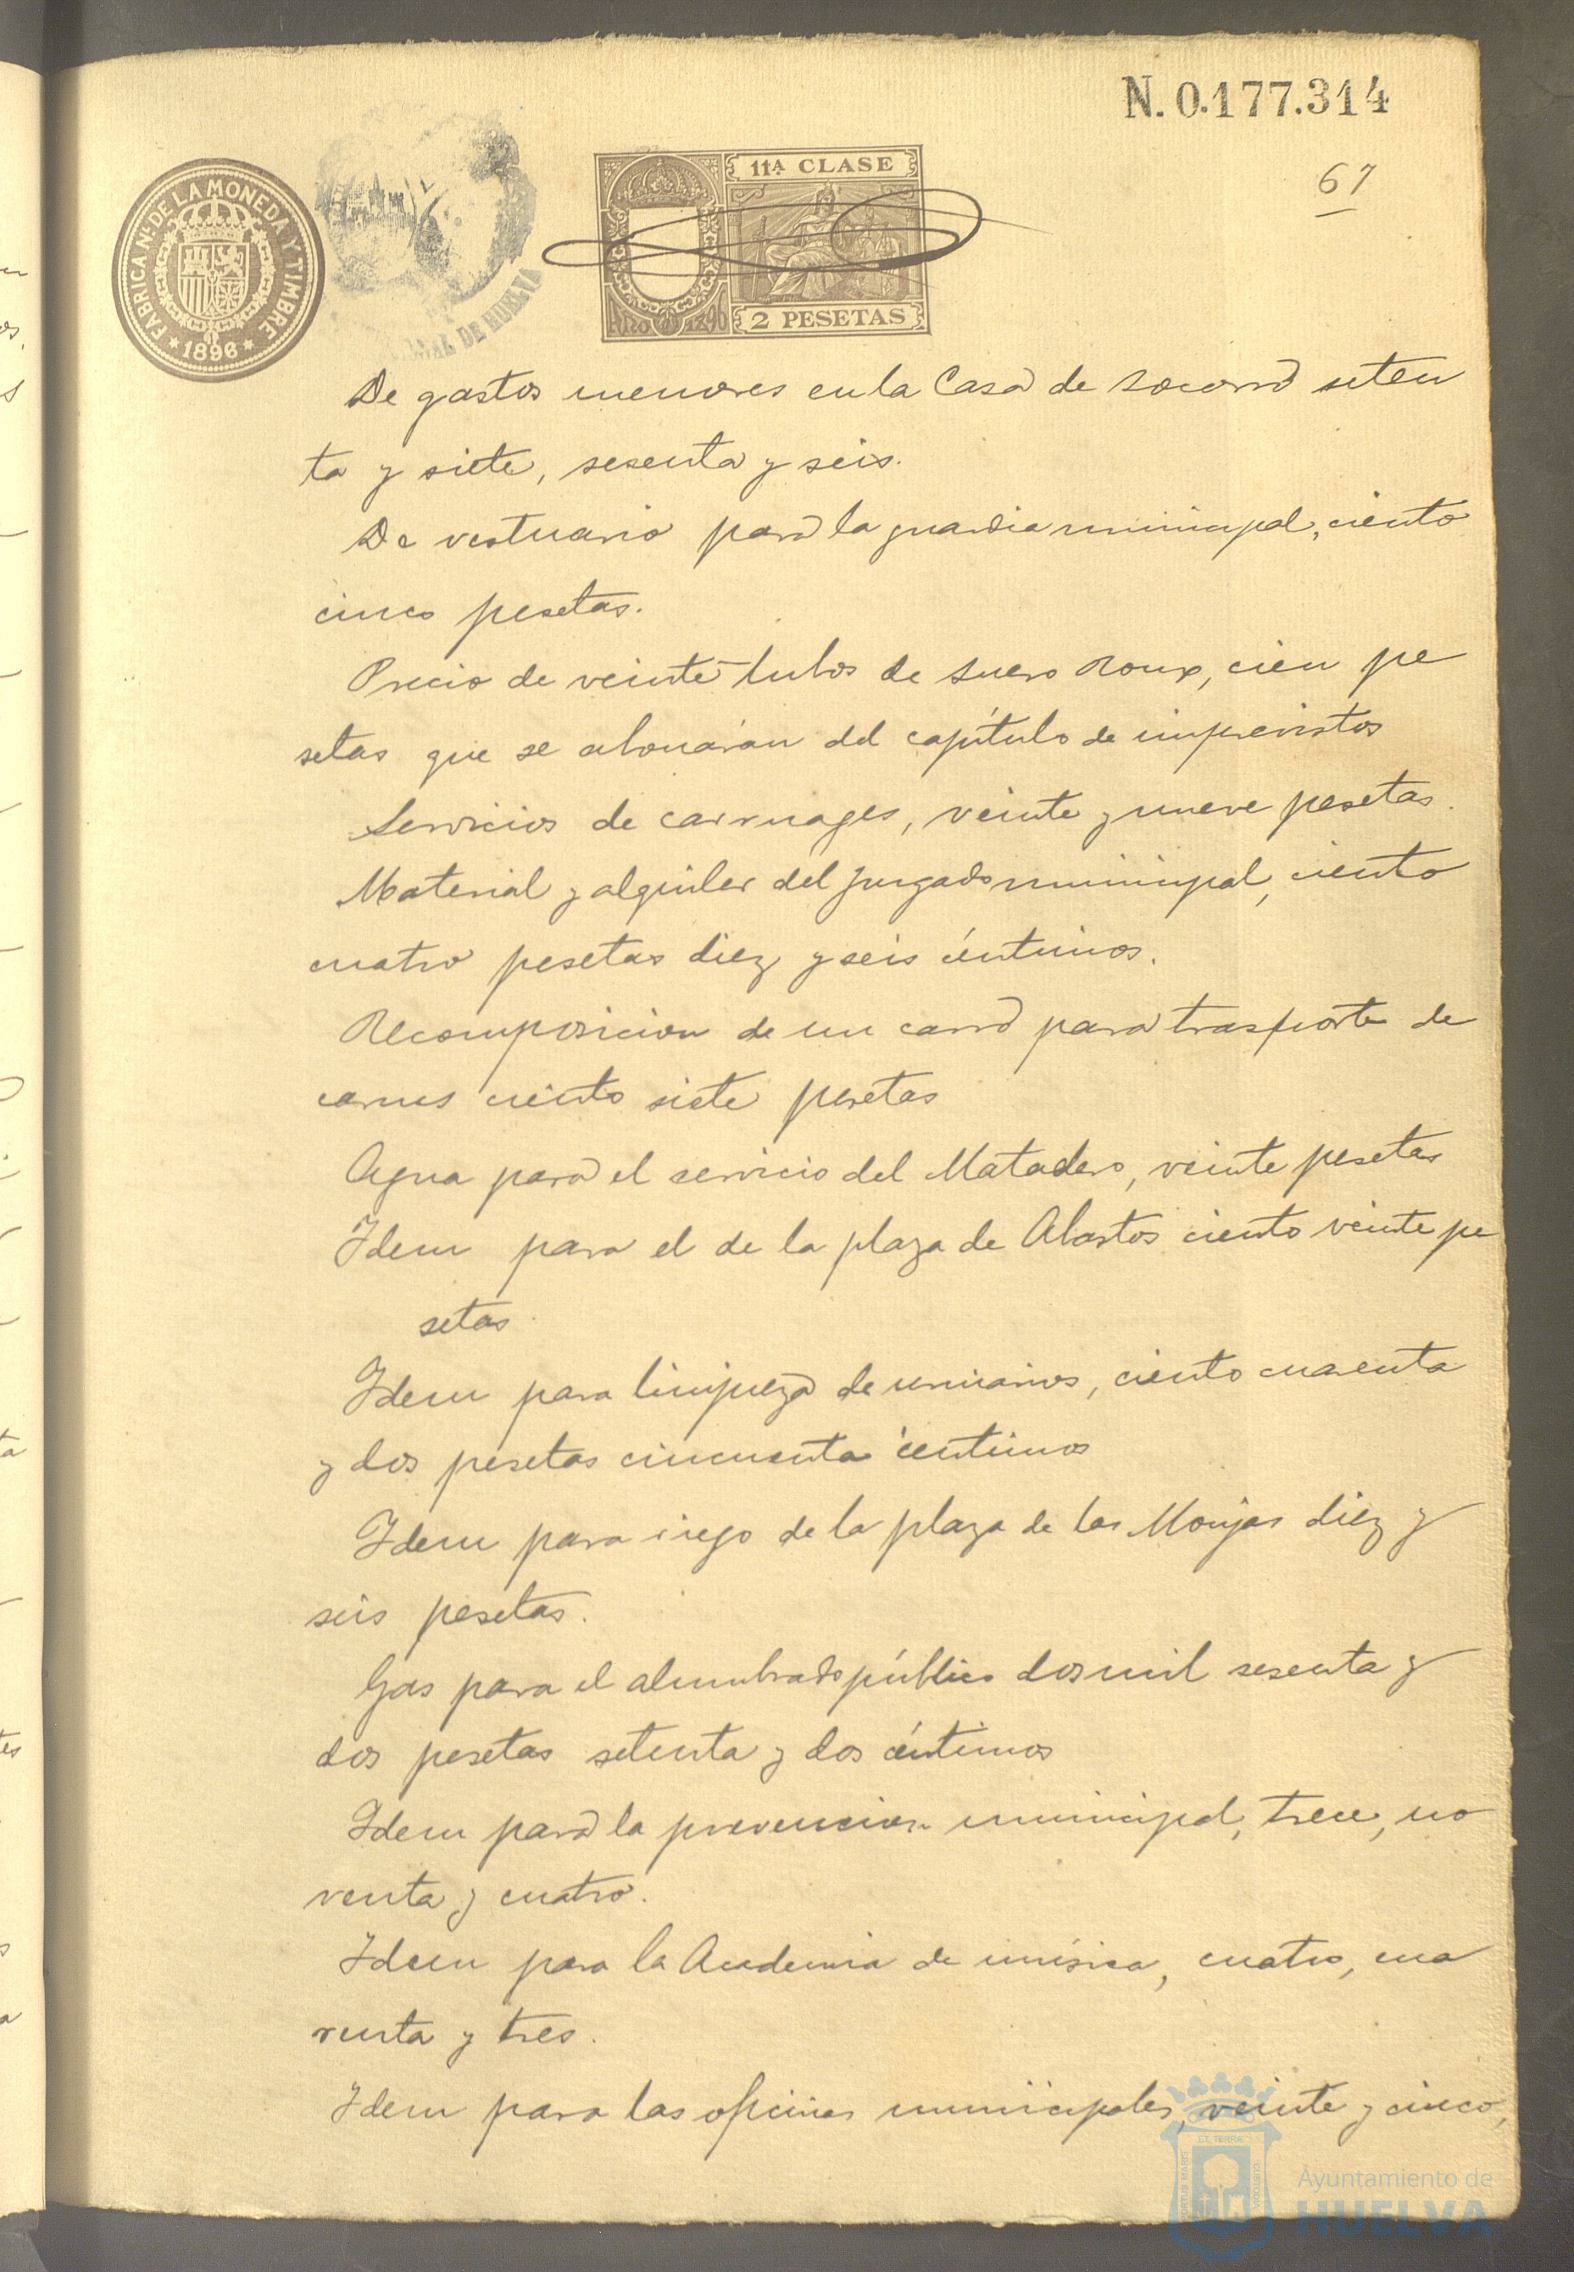 N. 0.177.314
67
FABRICA Nl. DE LA MONEDA Y TIMBRE
1896
DE HUELVA
11ª CLASE
2 PESETAS
De gastos menores en la Casa de Socorro seten
ta y siete, sesenta y seis.
De vestuario para la guardia municipal, ciento
cinco pesetas.
Precio de veinte tubos de suero Roux, cien pe
setas que se abonarán del capítulo de imprevistos
Servicios de carruages, veinte y nueve pesetas.
Material y alquiler del Juzgado municipal, ciento
cuatro pesetas diez y seis céntimos.
Recomposicion de un carro para trasporte de
carnes ciento siete pesetas
Agua para el servicio del Matadero, veinte pesetas
Idem para el de la plaza de Abastos ciento veinte pe
setas.
Idem para limpieza de urinarios, ciento cuarenta
y dos pesetas cincuenta céntimos
Idem para riego de la plaza de las Monjas diez y
seis pesetas.
Gas para el alumbrado público dos mil sesenta y
dos pesetas setenta y dos céntimos
Idem para la prevencion municipal, trece, no
venta y cuatro.
Idem para la Academia de música, cuatro, cua
renta y tres.
Idem para las oficinas municipales, veinte y cinco,
Ayuntamiento de
HUELVA